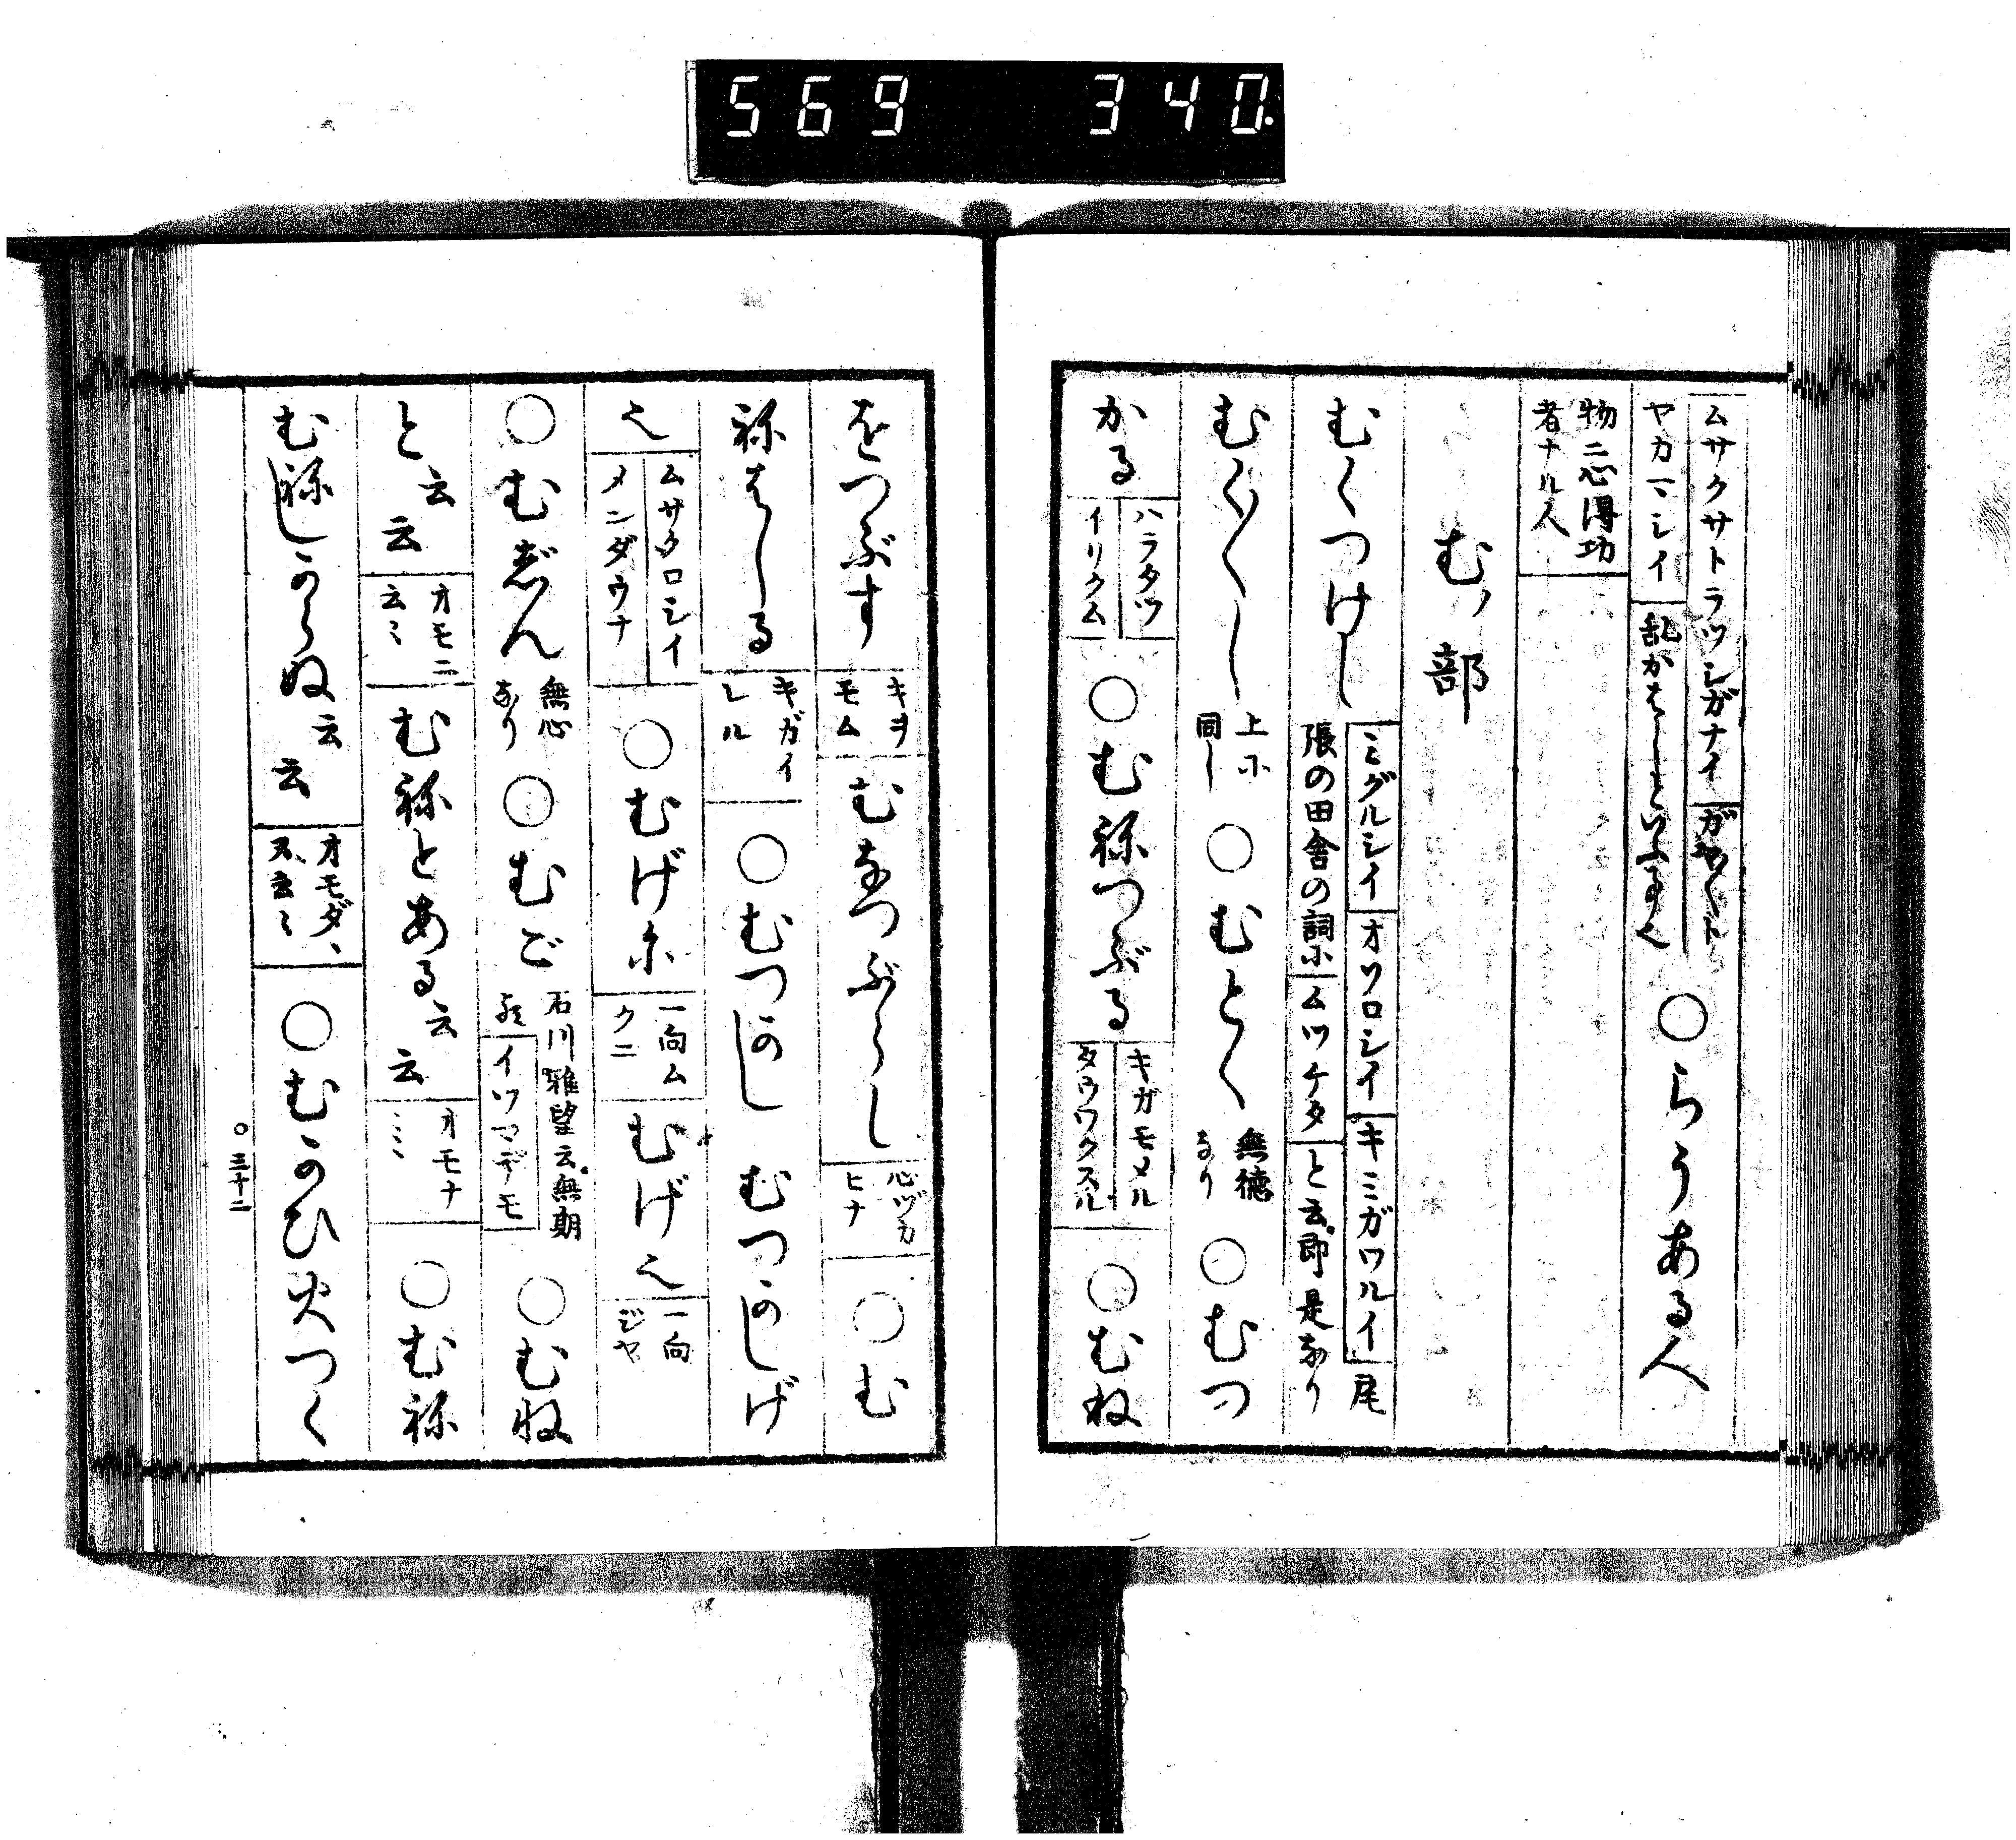 569 340.
ムサクサトラツシガナイ ガヤ〱ト
ヤカマシイ 乱がはしといふ事也 ○らうある人
物ニ心得功
者ナル人
むノ部
むくつけし ミグルシイ オソロシイ キミガワルイ 尾
張の田舎の詞に ムツケタ と云。即是なり
むく〱し 上に同し ○むとく 無徳なり ○むつ
かる ハラタツ イリクム ○むねつぶる キガモメル タウワクスル ○むね
をつぶす キヲモム むねつぶらし 心ヅカヒナ ○む
ねはしる キガイレル ○むつかし むつかしげ
也 ムサクロシイ メンダウナ ○むげに 一向ムクニ むげ也 一向ジヤ
○むじん 無心なり ○むご 石川雅望云。無期 イツマデモ ○むね
と云云 オモニ云〻 むねとある云云 オモナ〻〻 ○むね
むねしからぬ云云 オモダヽヌ云〻 ○むかひ火つく
○三十二